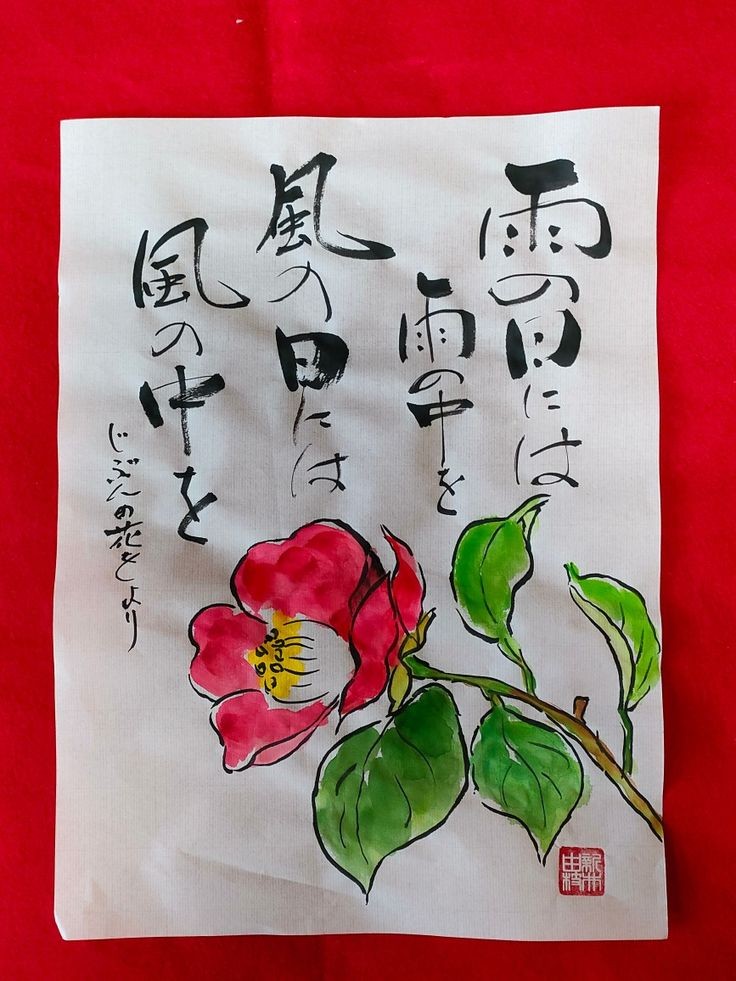 雨の日には
雨の中を
風の日には
風の中を
じぶんの花をより